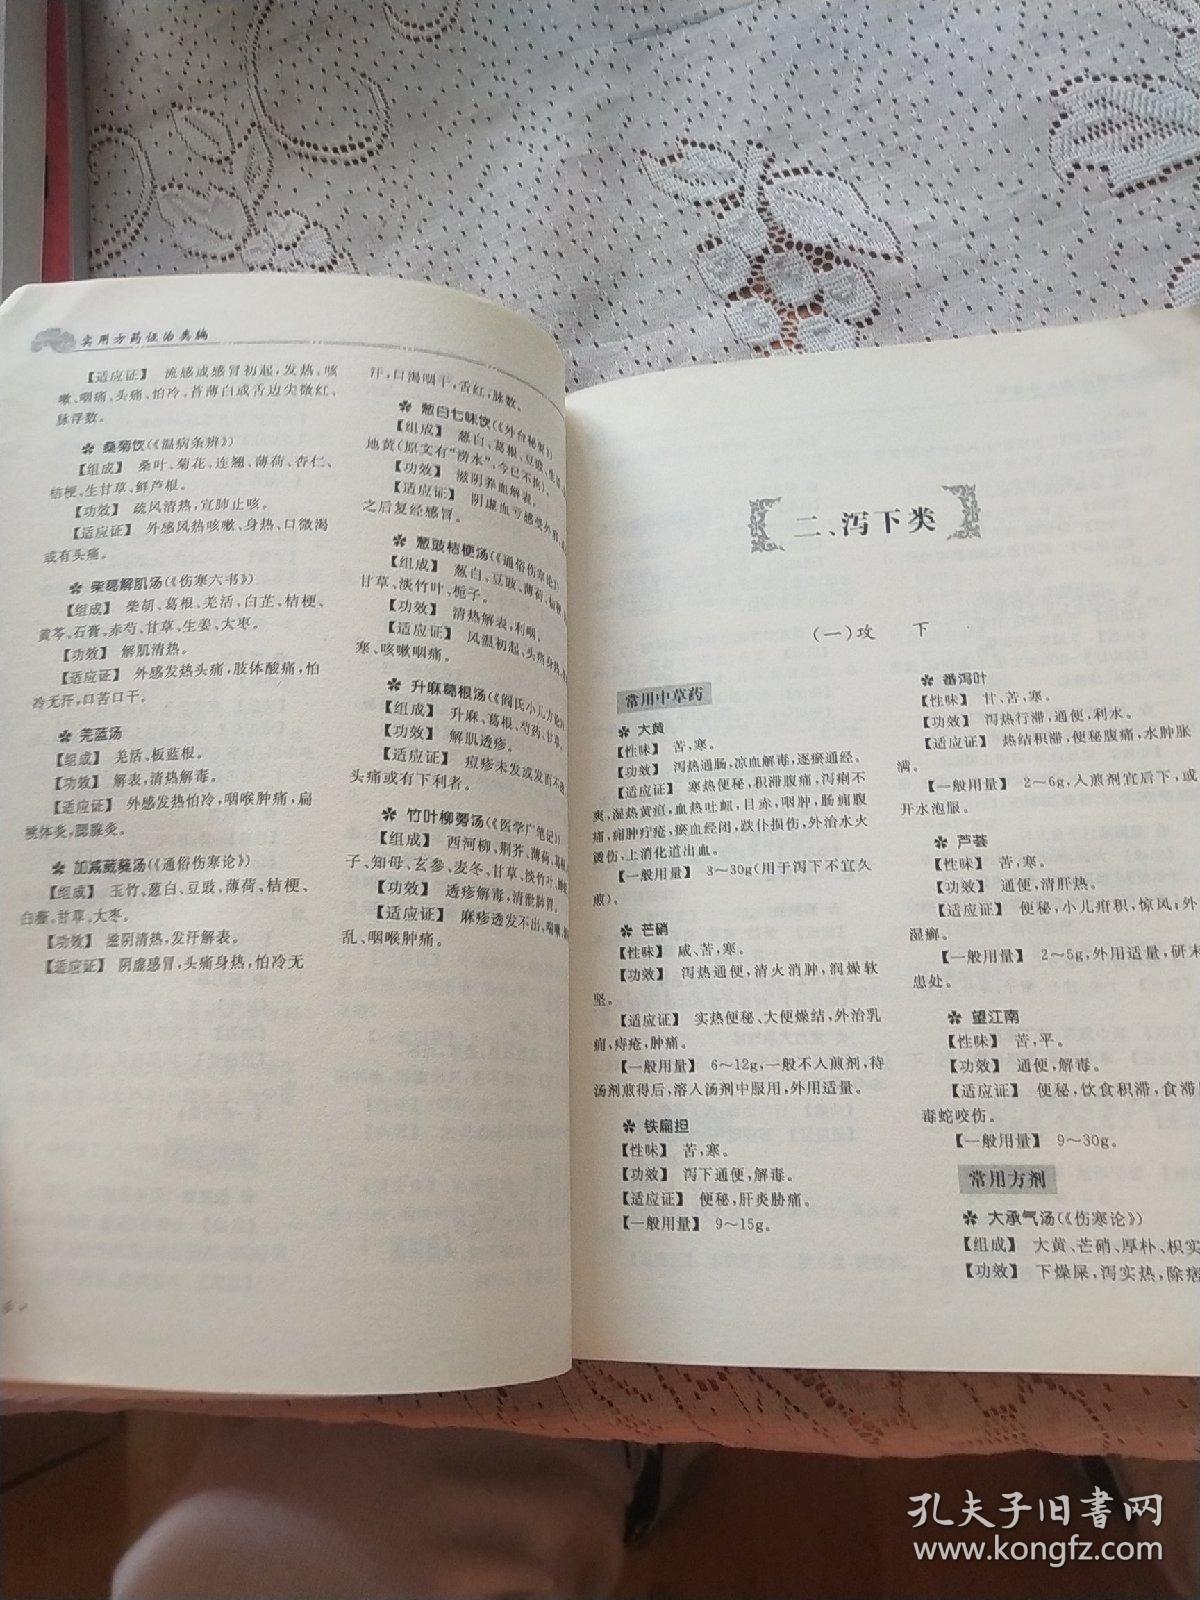 实用方药证治类编
【适应证】 流感或感冒初起,发热、咳
嗽、咽痛、头痛、怕冷、苔薄白或舌边尖微红、
脉浮数。
桑菊饮(《温病条辨》)
【组成】 桑叶、菊花、连翘、薄荷、杏仁、
桔梗、生甘草、鲜芦根。
【功效】 疏风清热,宣肺止咳。
【适应证】 外感风热咳嗽、身热、口微渴
或有头痛。
柴葛解肌汤(《伤寒六书》)
【组成】 柴胡、葛根、羌活、白芷、桔梗、
黄芩、石膏、赤芍、甘草、生姜、大枣。
【功效】 解肌清热。
【适应证】 外感发热头痛,肢体酸痛,怕
冷无汗,口苦口干。
羌蓝汤
【组成】 羌活、板蓝根。
【功效】 解表,清热解毒。
【适应证】 外感发热怕冷,咽喉肿痛,扁
桃体炎,腮腺炎。
加减葳蕤汤(《通俗伤寒论》)
【组成】 玉竹、葱白、豆豉、薄荷、桔梗、
白薇、甘草、大枣。
【功效】 滋阴清热,发汗解表。
【适应证】 阴虚感冒,头痛身热,怕冷无
汗,口渴咽干,舌红,脉数。
葱白七味饮(《外台秘要》)
【组成】 葱白、葛根、豆豉、生
地黄(原文有“涝水”,今已不拘)。
【功效】 滋阴养血解表。
【适应证】 阴虚血亏感受外邪
之后复经感冒。
葱豉桔梗汤(《通俗伤寒论》)
【组成】 葱白、豆豉、薄荷、桔梗、
甘草、淡竹叶、栀子。
【功效】 清热解表,利咽。
【适应证】 风温初起、头痛身热
寒、咳嗽咽痛。
升麻葛根汤(《阎氏小儿方论》)
【组成】 升麻、葛根、芍药、甘草。
【功效】 解肌透疹。
【适应证】 痘疹未发或发而不透
头痛或有下利者。
竹叶柳蒡汤(《医学广笔记》)
【组成】 西河柳、荆芥、薄荷、
子、知母、玄参、麦冬、甘草、淡竹叶、
【功效】 透疹解毒,清泄肺胃。
【适应证】 麻疹透发不出,喘嗽,
乱、咽喉肿痛。
二、泻下类
(一)攻 下
常用中草药
大黄
【性味】 苦,寒。
【功效】 泻热通肠,凉血解毒,逐瘀通经。
【适应证】 寒热便秘,积滞腹痛,泻痢不
爽,湿热黄疸,血热吐衄,目赤,咽肿,肠痈腹
痛,痈肿疔疮,瘀血经闭,跌仆损伤,外治水火
烫伤,上消化道出血。
【一般用量】 3～30g(用于泻下不宜久
煎)。
芒硝
【性味】 咸、苦,寒。
【功效】 泻热通便,清火消肿,润燥软
坚。
【适应证】 实热便秘、大便燥结,外治乳
痈,痔疮,肿痛。
【一般用量】 6～12g,一般不入煎剂,待
汤剂煎得后,溶入汤剂中服用,外用适量。
铁扁担
【性味】 苦,寒。
【功效】 泻下通便,解毒。
【适应证】 便秘,肝炎胁痛。
【一般用量】 9～15g。
番泻叶
【性味】 甘、苦,寒。
【功效】 泻热行滞,通便,利水。
【适应证】 热结积滞,便秘腹痛,水肿胀
满。
【一般用量】 2～6g,入煎剂宜后下,或
开水泡服。
芦荟
【性味】 苦,寒。
【功效】 通便,清肝热。
【适应证】 便秘,小儿疳积,惊风;外
湿癣。
【一般用量】 2～5g,外用适量,研末
患处。
望江南
【性味】 苦,平。
【功效】 通便,解毒。
【适应证】 便秘,饮食积滞,食滞
毒蛇咬伤。
【一般用量】 9～30g。
常用方剂
大承气汤(《伤寒论》)
【组成】 大黄、芒硝、厚朴、枳实
【功效】 下燥屎,泻实热,除痞
孔夫子旧书网
www.kongfz.com